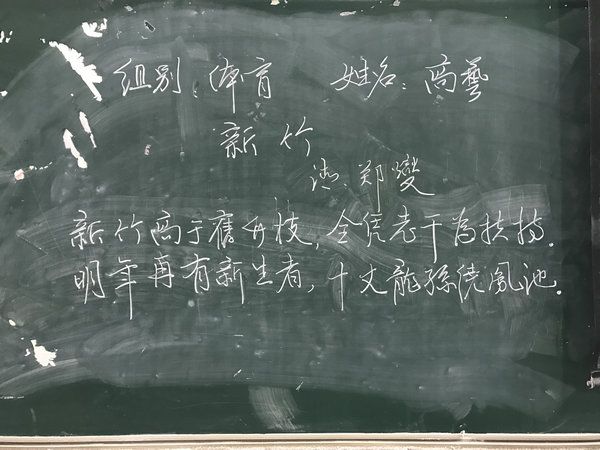 组别:体育 姓名:高藝
新竹
清.郑燮
新竹高于舊竹枝,全凭老干为扶持.
明年再有新生者,十丈龍孫绕鳳池.